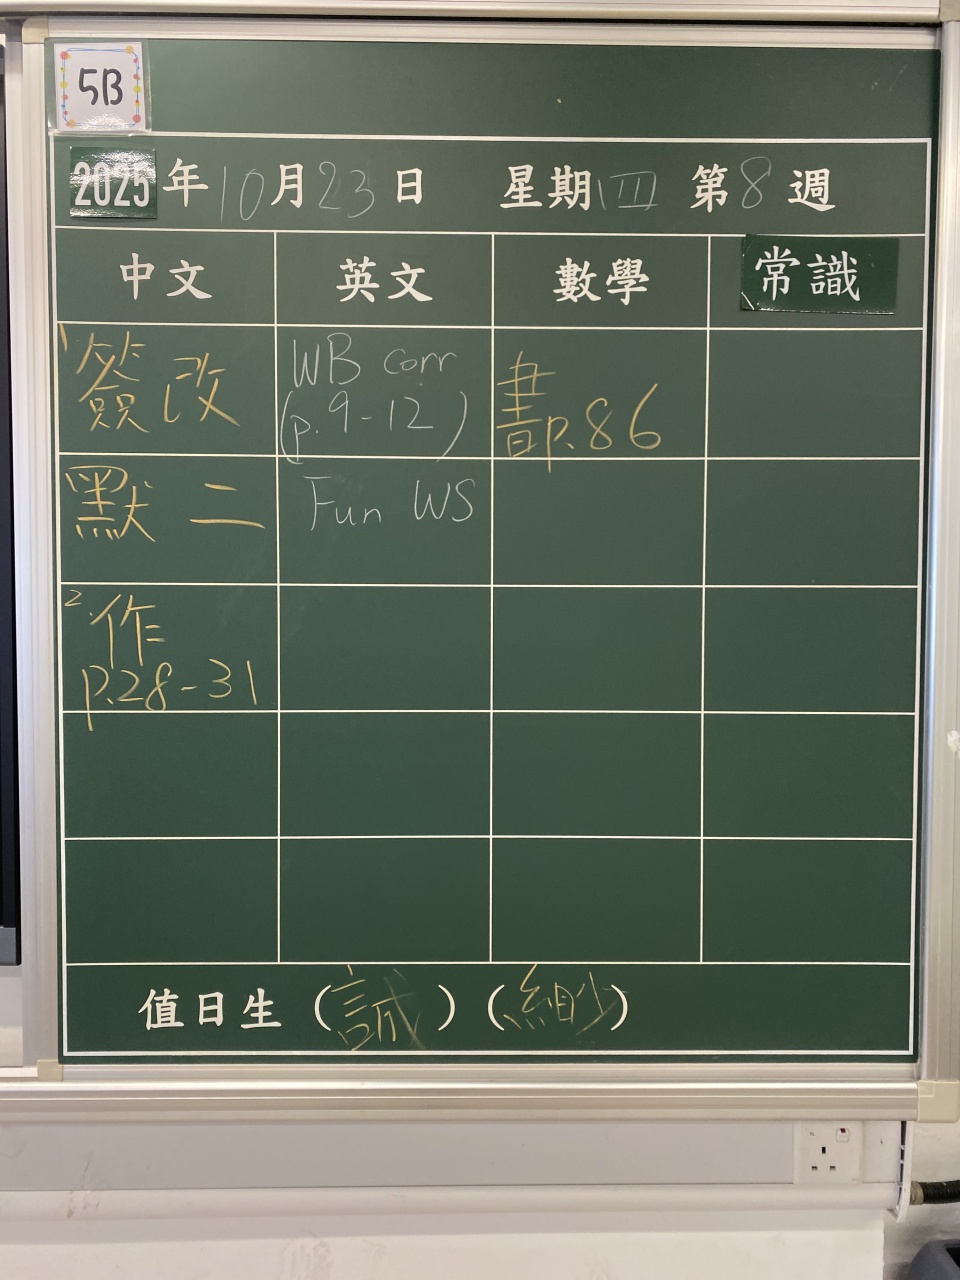 5B
2025 年 10 月 23 日 星期 四 第 8 週
中文 英文 數學 常識
1. 簽改 WB corr (p. 9-12) 書p.86
默二 Fun WS
2. 作
p.28-31
值日生 (誠) ( )